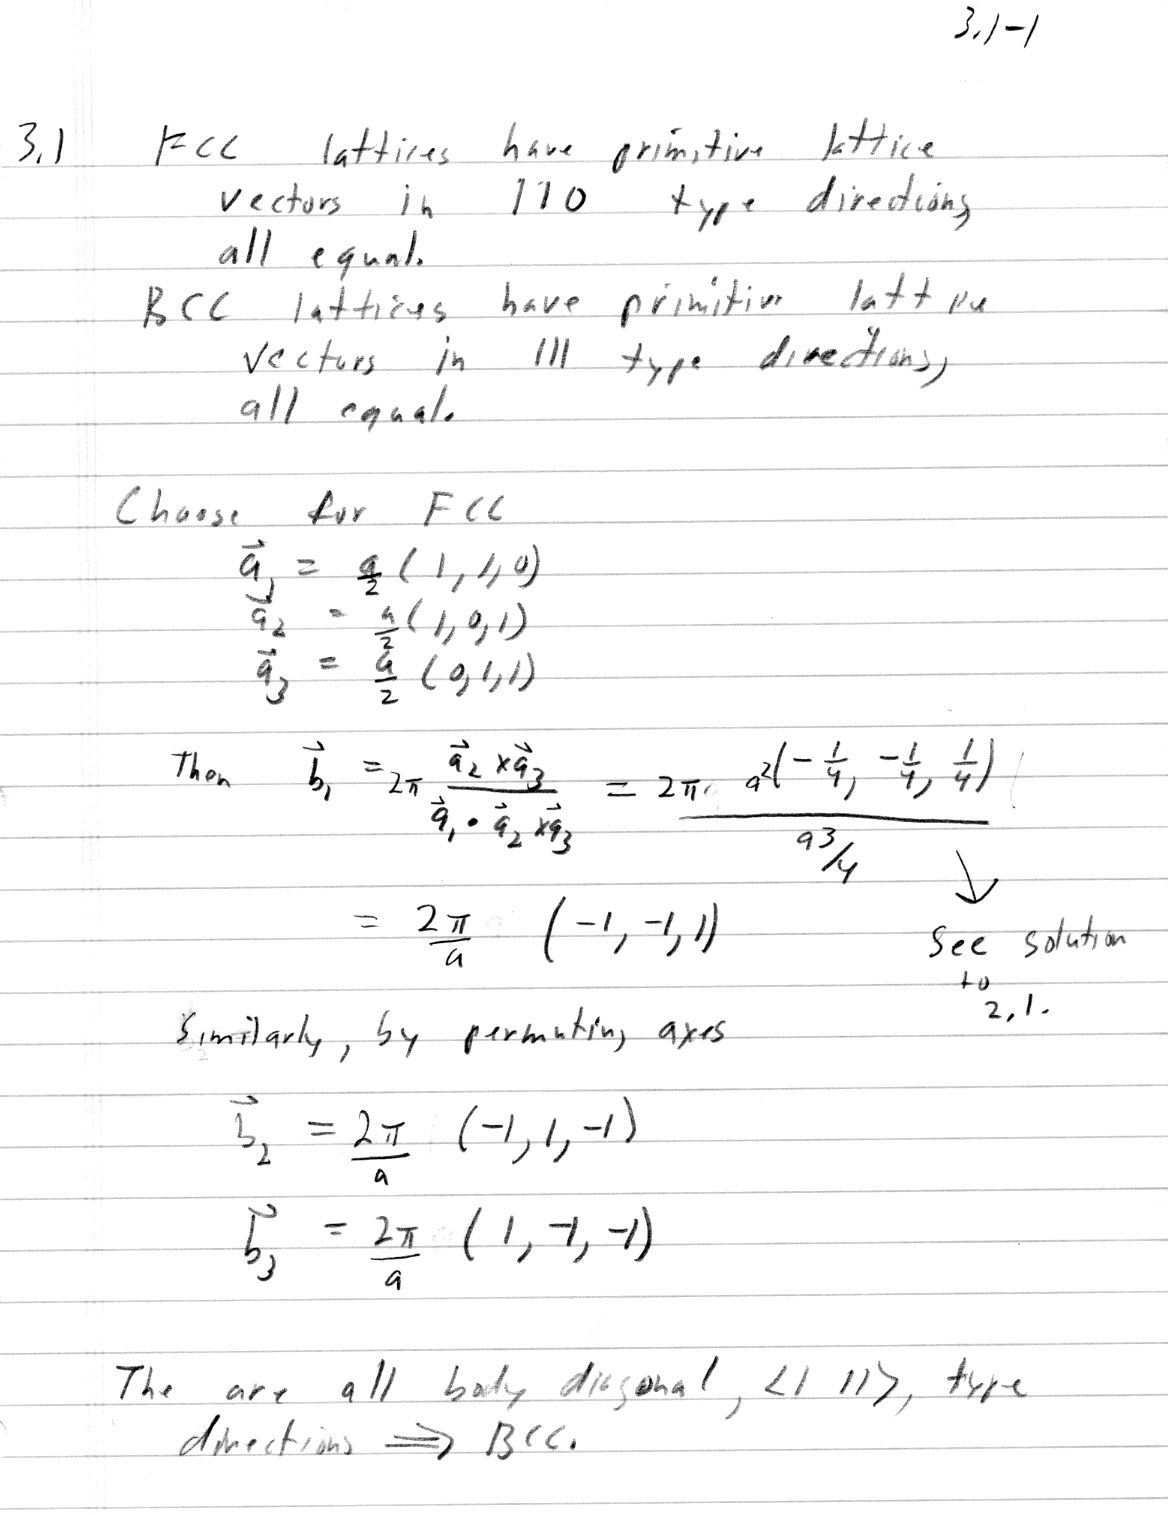 3.1-1
3.1 FCC lattices have primitive lattice
vectors in 110 type directions,
all equal.
BCC lattices have primitive lattice
vectors in 111 type directions,
all equal.
Choose for FCC
a⃗₁ = a/2 (1, 1, 0)
a⃗₂ = a/2 (1, 0, 1)
a⃗₃ = a/2 (0, 1, 1)
Then b⃗₁ = 2π (a⃗₂ × a⃗₃)/(a⃗₁ • a⃗₂ × a⃗₃) = 2π a²(-1/4, -1/4, 1/4)/(a³/4)
= 2π/a (-1, -1, 1)
See solution
to
2.1.
Similarly, by permuting axes
b⃗₂ = 2π/a (-1, 1, -1)
b⃗₃ = 2π/a (1, -1, -1)
The are all body diagonal, <111>, type
directions ⟹ BCC.